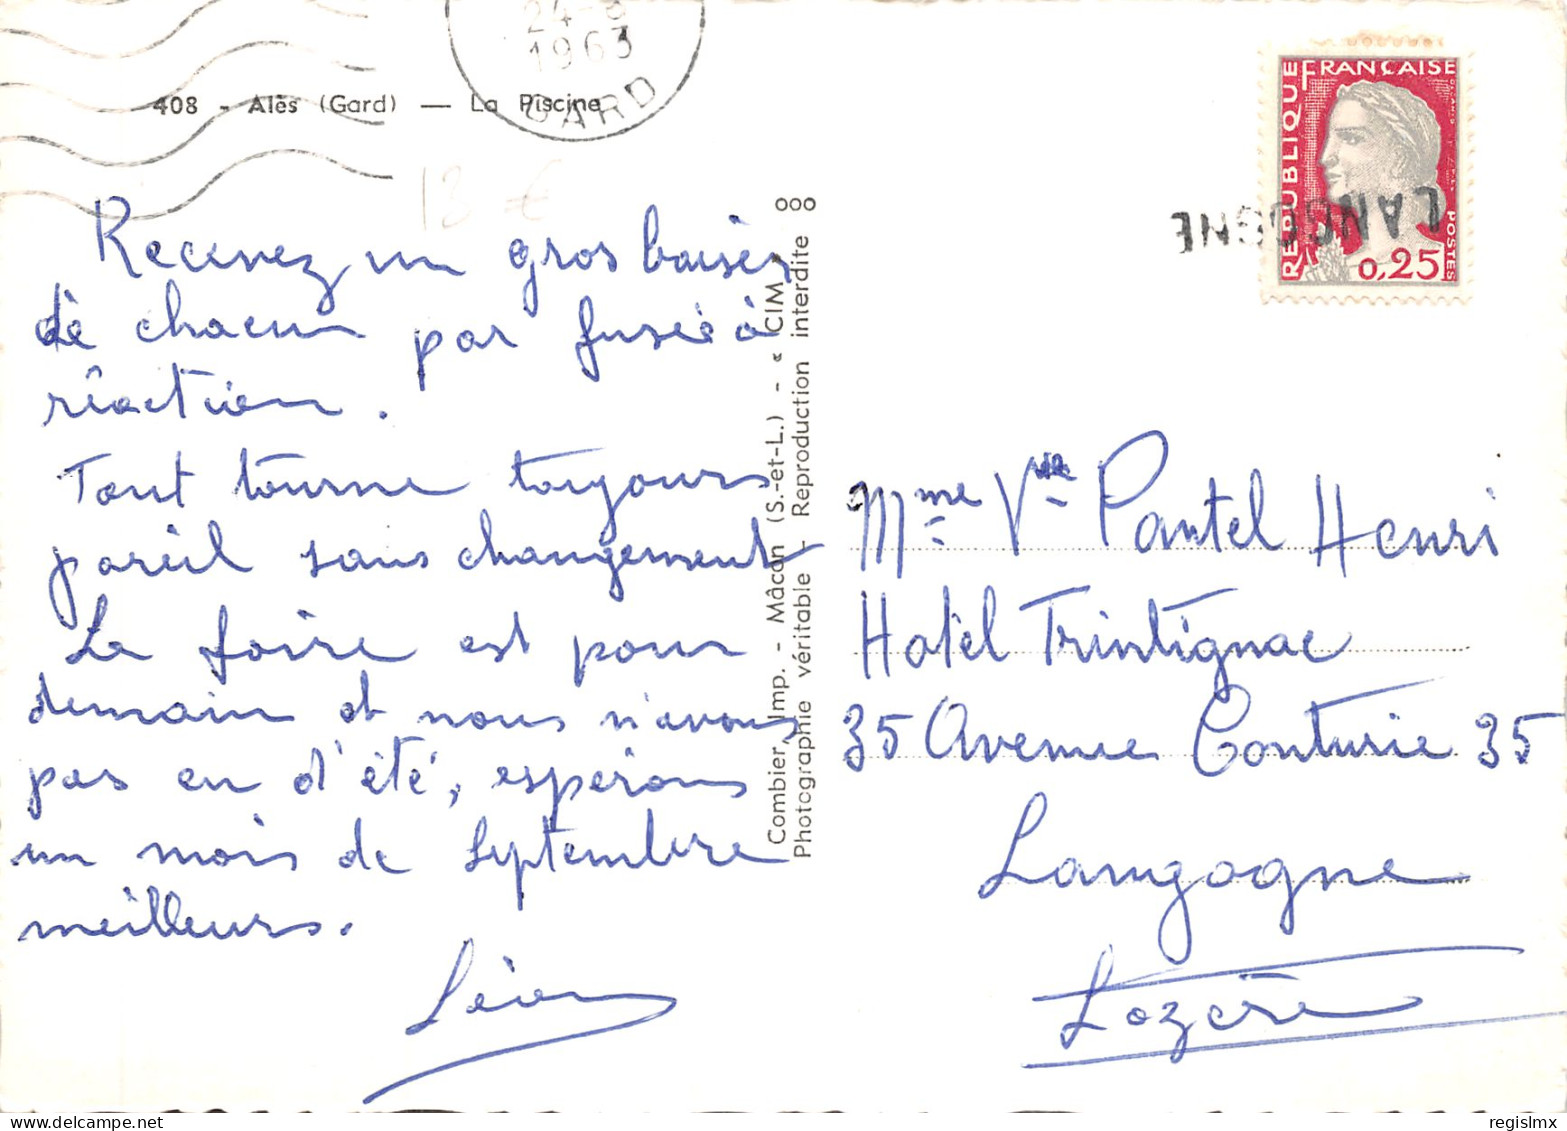 24-8
1963
GARD
408 - Alès (Gard) — La Piscine
REPUBLIQUE FRANÇAISE
POSTES
0,25
LANGOGNE
Recevez un gros baiser
de chacun par fusée à
réaction.
Tout tourne toujours
pareil sans changement
La foire est pour
demain et nous n'avons
pas eu d'été, espérons
un mois de Septembre
meilleurs.
Léon
Combier, Imp. - Mâcon (S.-et-L.) - « CIM »
Photographie véritable - Reproduction interdite
Mme Vve Pantel Henri
Hotel Trintignac
35 Avenue Conturie 35
Langogne
Lozère
delcampe.net
regislmx